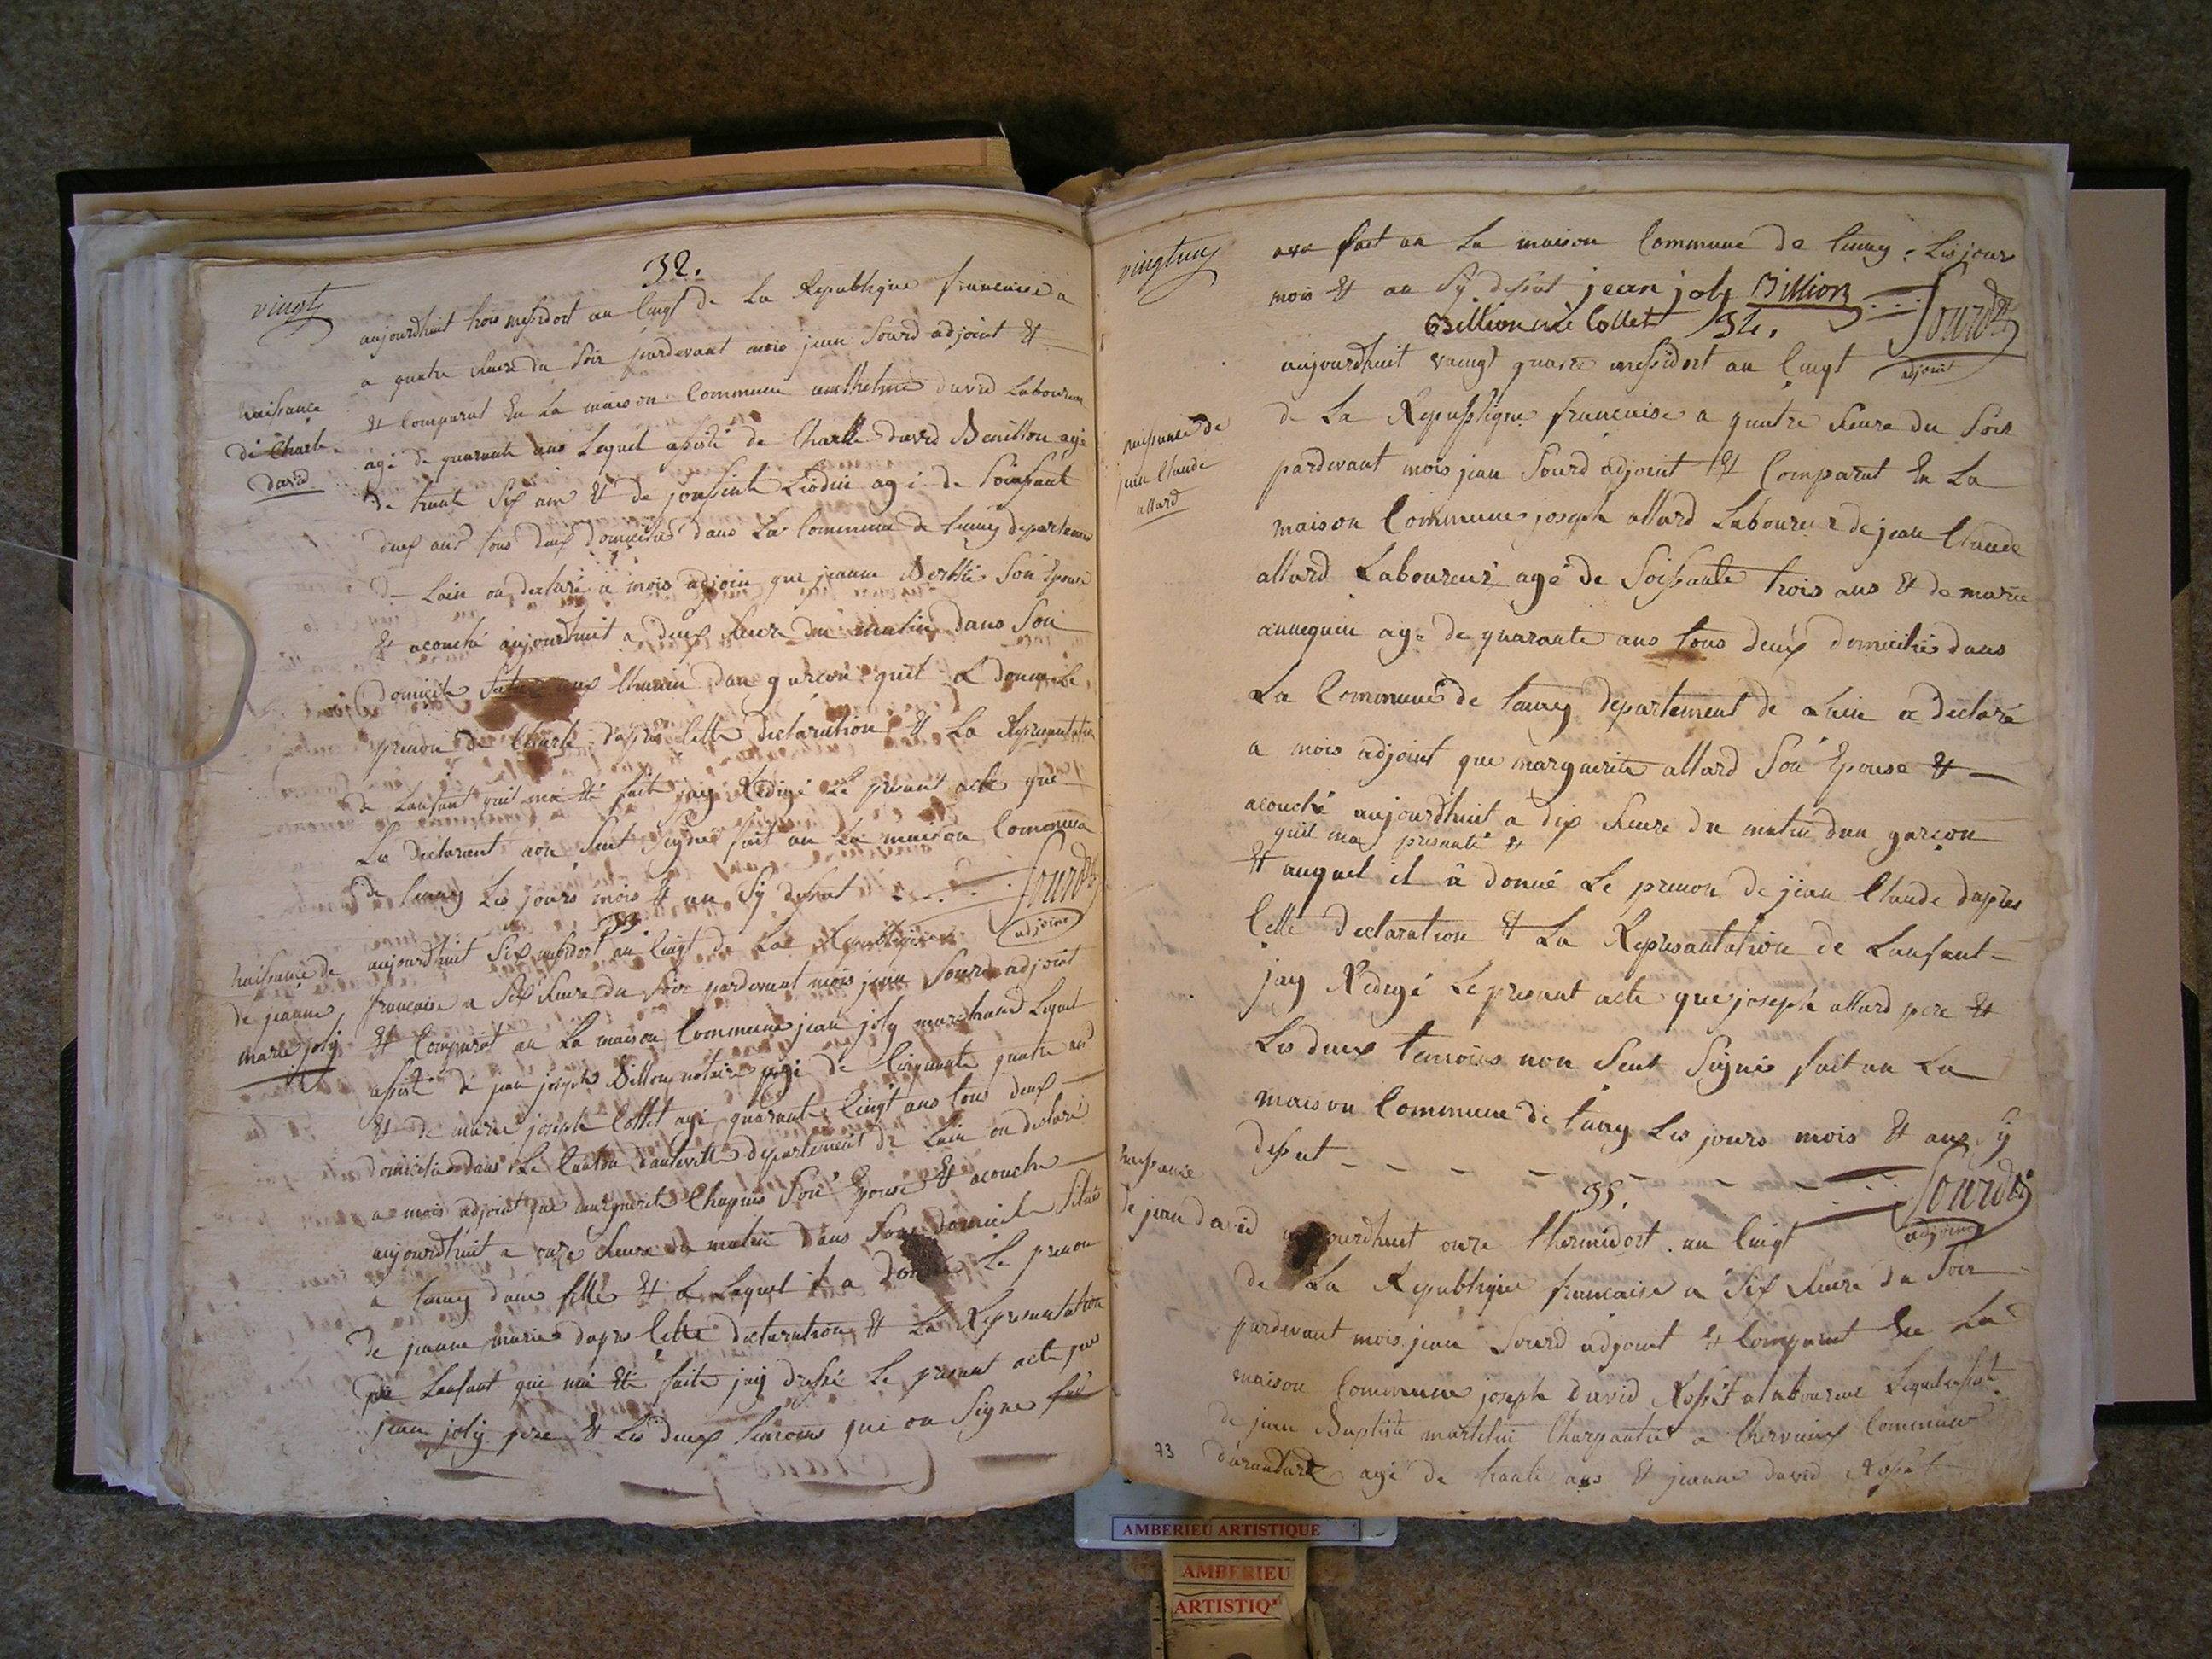 vingt
32.
aujourdhuit trois messidort an cinqt de La Republique francaise a
a quatre heure du Soir pardevant mois jean Sourd adjoint et
naissance
de Charle
david
et Comparut En La maison Commune anthelme david Laboureur
agé de quarante ans Lequel asisté de Charle david Benillon agé
de trante six ans et de Liodin agé de Soissant
deux ans tous deux domicilié dans La Commune de tenay departement
de Lain on declaré a mois adjoin que jeanne Berthé Son Epouse
et acouché aujourdhuit a deux heure du matin dans Son
domicile Situé aux Chemin dun garcon quil a donné Le
prenon de Charle dapré Cette declaration et La Represantation
de Lanfant quil ma été fait jay Redigé Le presant acte que
Le declarant non Seut Signé fait an La maison Commune
de tenay Les jours mois et an Sy desut Sourd
adjoint
33.
naissance de
de jeanne
marie joly
aujourdhuit Six messidort an cinqt de La Republique
francaise a Six heure du Soir pardevant mois jean Sourd adjoint
et Comparut an La maison Commune jean joly marchand Lequel
assisté de jean joseph Billion notaire agé de Cinquante quatre ans
et de marie joseph Collet agé quarante Cinqt ans tous deux
domicilié dans Le Canton dauteville departement de Lain on declaré
a mois adjoint que marguerite Chapuis Son Epouse et acouché
aujourdhuit a onze heure du matin dans Son domicile Situé
a tenay dune fille et a Laquel il a donné Le prenon
de jeanne marie dapré Cette declaration et La Represantation
de Lanfant qui ma été faite jay dressé Le presant acte que
jean joly pere et Les deux temoins qui on Signe fait
vingtun
fait an La maison Commune de tenay Les jours
mois et an Sy desut jean joly Billion Sourd
Billion née Collet 34. adjoint
naissance de
jean Claude
allard
aujourdhuit vaingt quatre messidort an Cinqt
de La Republique francaise a quatre heure du Soir
pardevant mois jean Sourd adjoint et Comparut En La
maison Commune joseph allard Laboureur de jean Claude
allard Laboureur agé de Soissante trois ans et de marie
annequin agé de quarante ans tous deux domicilié dans
La Commune de tenay departement de Lain a declaré
a mois adjoint que marguerite allard Son Epouse et
acouché aujourdhuit a dix heure du matin dun garçon
quil ma presanté et
et auquel il a donné Le prenon de jean Claude dapres
Cette declaration et La Represantation de Lanfant
jay Redigé Le presant acte que joseph allard pere et
Les deux temoins non Seut Signé fait an La
maison Commune de tenay Les jours mois et ans Sy
desut Sourd
adjoint
35.
naissance
de jean david
aujourdhuit onze thermidort an Cinqt
de La Republique francaise a Six heure du Soir
pardevant mois jean Sourd adjoint et Comparut En La
maison Commune joseph david Rosset Laboureur Lequel assisté
de jean Baptiste martelin Charpantié a Chervieux Commune
darandard agé de trante ans et jeanne david Rosset
73
AMBERIEU ARTISTIQUE
AMBERIEU
ARTISTIQ